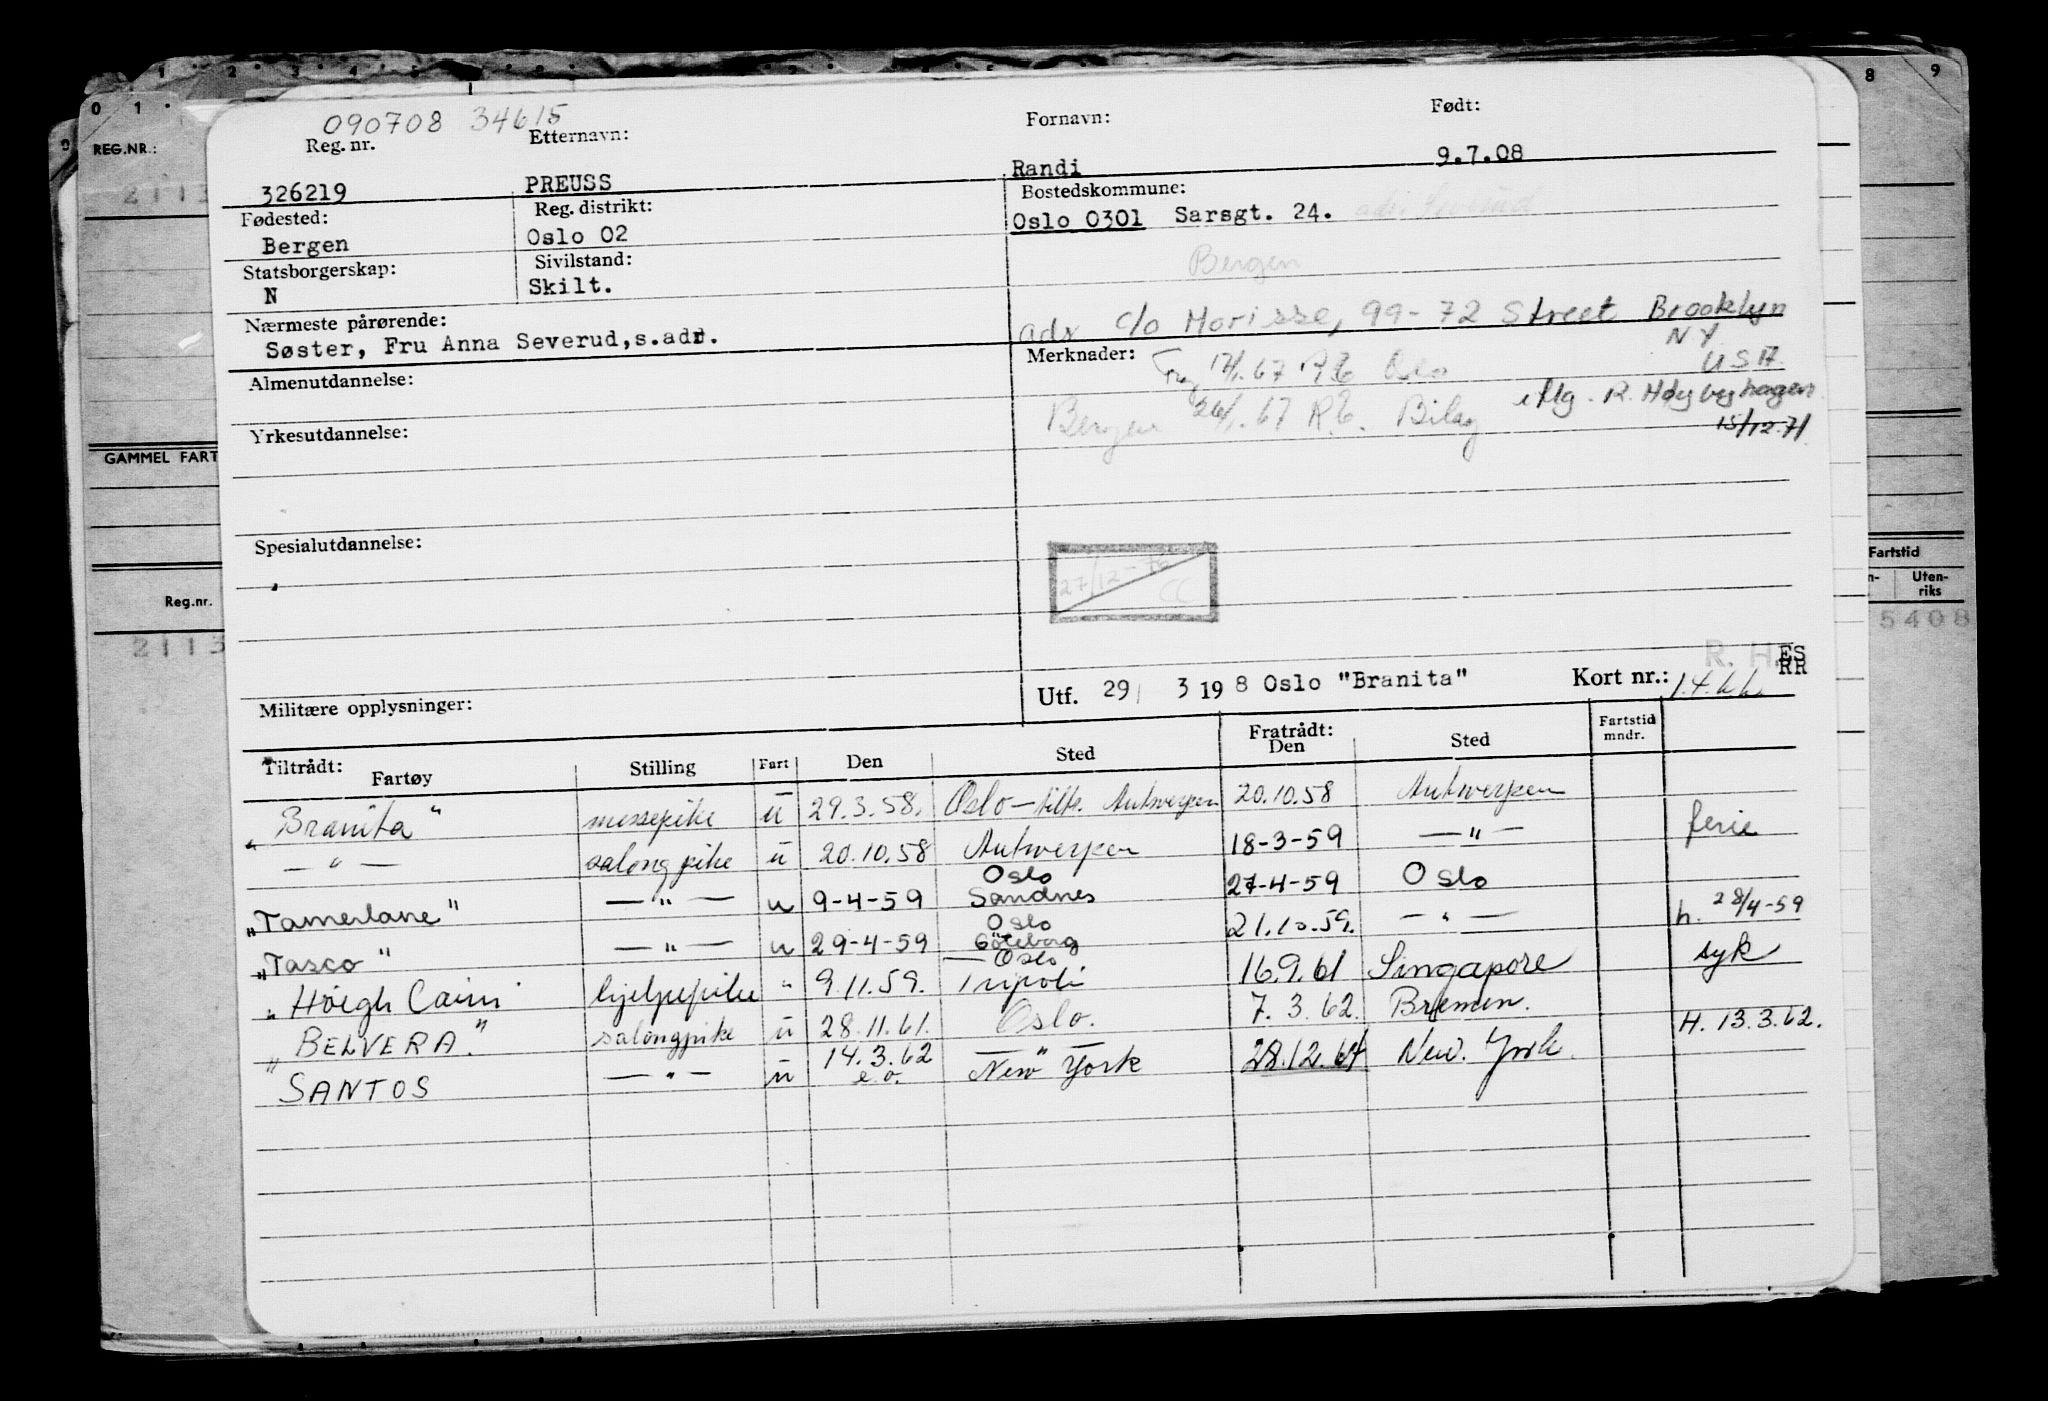 0 1 2 3 4 5 8 9
REG.NR.:
2113
GAMMEL FART
Reg.nr.
2113
Fartstid
n- Uten-
riks
5408
090708 34615
Reg. nr. Etternavn: Fornavn: Født:
326219 PREUSS Randi 9.7.08
Fødested: Reg. distrikt: Bostedskommune:
Bergen Oslo 02 Oslo 0301 Sarsgt. 24.
Statsborgerskap: Sivilstand: Bergen
N Skilt.
Nærmeste pårørende: adr c/o Morisse, 99-72 Street Brooklyn
Søster, Fru Anna Severud,s.adr. NY
Almenutdannelse: Merknader: 17/1.67 R.E Oslo USA.
iflg. R. Høybyhagen
Yrkesutdannelse: Bergen 26/1.67 R.E. Bilag 15/12.71
Spesialutdannelse:
27/12-72
CC
R. H. ES
RR
Militære opplysninger: Utf. 29/ 3 19 8 Oslo "Branita" Kort nr.: 1.4.66
Tiltrådt: Fartøy Stilling Fart Den Sted Fratrådt: Den Sted Fartstid mndr.
"Branita" messepike u 29.3.58. Oslo - tiltr. Antwerpen 20.10.58 Antwerpen
— " — salongpike u 20.10.58 Antwerpen 18-3-59 — " — ferie
"Tamerlane" — " — u 9-4-59 Oslo Sandnes 27-4-59 Oslo
"Tasco" — " — u 29-4-59 Oslo Göteborg 21.10.59. — " — h. 28/4-59
"Höegh Cairn" hjelpepike " 9.11.59. — Oslo Tripoli 16.9.61 Singapore syk
"BELVERA." salongpike u 28.11.61. Oslo. 7.3.62. Bremen.
SANTOS — " — u 14.3.62 e.o. — " — New York 28.12.67 New. York. H. 13.3.62.